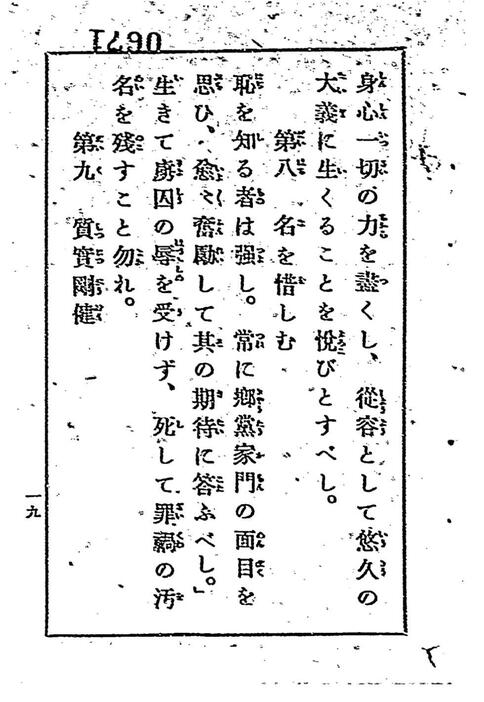 0671
身心一切の力を盡くし、從容として悠久の
大義に生くることを悅びとすべし。
第八 名を惜しむ
恥を知る者は强し。常に鄕黨家門の面目を
思ひ、愈〻奮勵して其の期待に答ふべし。」
生きて虜囚の辱を受けず、死して罪禍の汚
名を殘すこと勿れ。
第九 質實剛健
一九